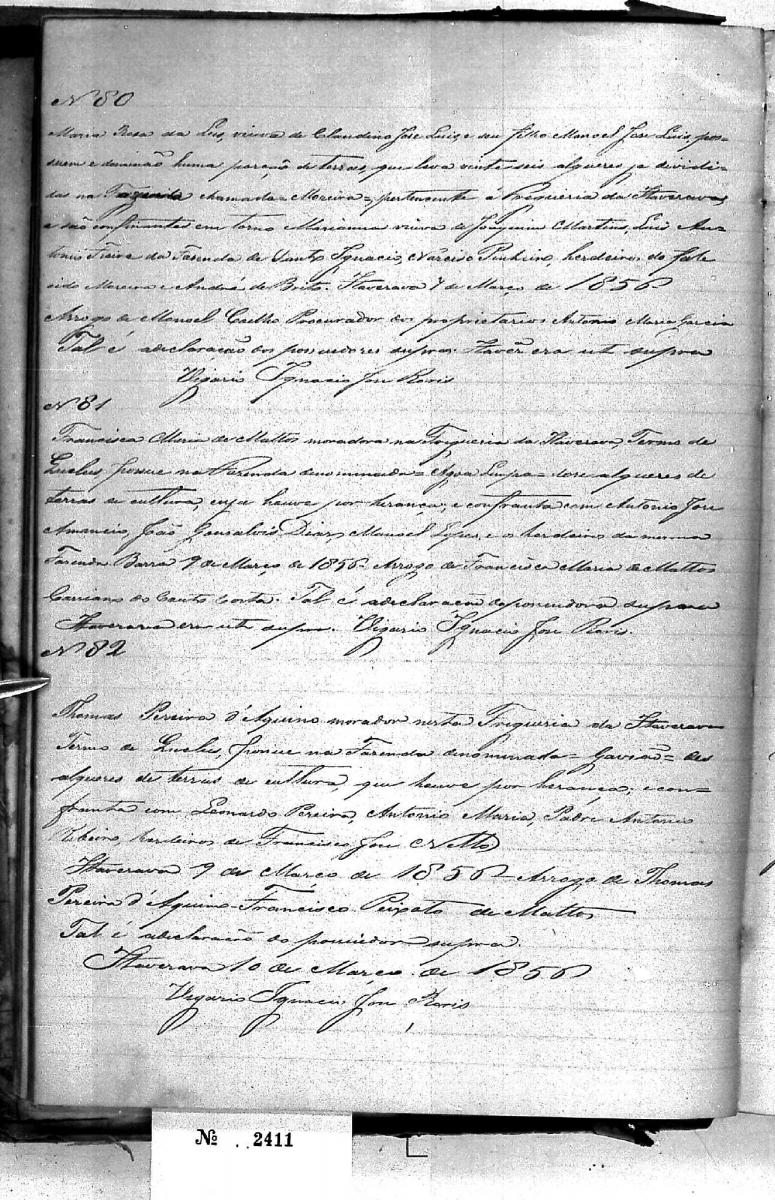 N 80
Maria Rosa da Luz, viuva de Claudino José Luis, e seu filho Manoel José Luis, pos-
suem e dominão huma porção de terras, que leva vinte seis alqueres, ja dividi-
das na Fazenda chamada = Moreira =, pertencente á Freguezia da Itaverava,
e são confinantes em torno Marianna viuva de Joaquim Martins, Luis An-
tonio Freire da Fazenda de Santo Ignacio, Narciso Pinheiro, herdeiros do fale
cido Moreira e André de Brito. Itaverava 7 de Março de 1856
Arrogo de Manoel Coelho Procurador dos proprietarios Antonio Maria Garcia
Tal é a declaração dos possuidores supra. Itavera era ut supra
Vigario Ignacio José
N 81
Francisca Maria de Mattos moradora na Fregueria da Itaverava, Termo de
Queluz possue na Fazenda denominada = Agoa Limpa = dose alqueres de
terras de cultura, cuja houve por herança; e confranta com Antonio José
Amancio, João Gonsalvis Dias, Manoel Lopes, e os herdeiros da mesma
Fazenda Barra 9 de Março de 1856 - Arrogo de Francisca Maria de Mattos
do Couto Costa. Tal é a declaração da possuidora supra
Itaverava era ut supra. Vigario Ignacio José
N 82
Thomas Pereira d'Aquino morador nesta Fregueria da Itaverava
Termo de Queluz, possue na Fazenda denominada = Gavião = des
alqueres de terras de cultura, que houve por herança; e con-
frantta com Leonardo Pereira, Antonio Maria, Padre Antonio
Ribeiro, herdeiros de Francisco José Netto
Itaverava 9 de Março de 1856 - Arrogo de Thomas
Pereira d'Aquino - Francisco Peixoto de Mattos
Tal é a declaração do possuidor supra.
Itaverava 10 de Março de 1856
Vigario Ignacio José
№ 2411